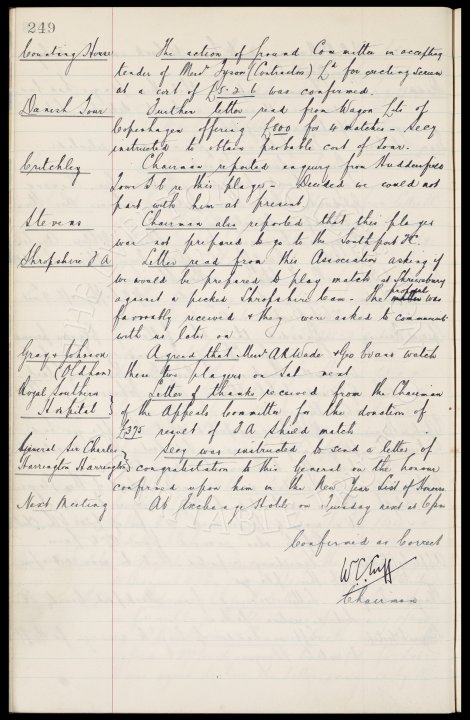 249
Counting House The action of Ground Committee in accepting
tender of Messrs Tyson (Contractors) Ld for erecting screen
at a cost of £5-2-6 was confirmed.
Danish Tour Further letter read from Wagon Lits of
Copenhagen offering £800 for 4 matches - Secy
instructed to obtain probable cost of tour.
Critchley Chairman reported enquiry from Huddersfield
Town F C re this player - Decided we could not
part with him at present
Stevens Chairman also reported that this player
was not prepared to go to the Southport FC.
Shropshire F A Letter read from this Association asking if
we would be prepared to play match at Shrewsbury
against a picked Shropshire team. The project was
favorably received & they were asked to communicate
with us later on
Gray & Johnson Agreed that Messrs A R Wade & Geo Evans watch
(Oldham) these two players on Sat next
Royal Southern Letter of thanks received from the Chairman
Hospital of the Appeals Committee for the donation of
£375 result of F A Shield match
General Sir Charles Secy was instructed to send a letter of
Harrington Harrington congratulation to this General on the honour
conferred upon him in the New Year List of Honours
Next Meeting At Exchange Hotel on Tuesday next at 6 pm
Confirmed as Correct
W.C. Cuff
Chairman